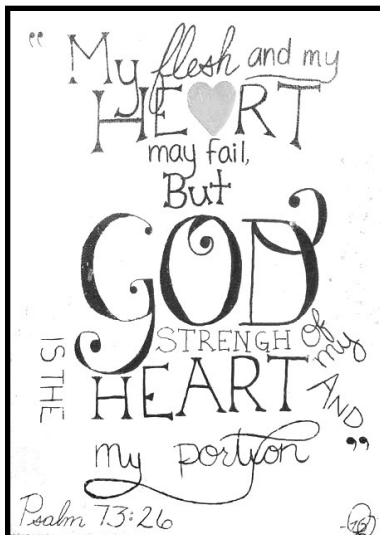 “My flesh and my
HE♥RT
may fail,
But
GOD
IS THE
STRENGH of my
HEART
AND
my portion ”
Psalm 73:26